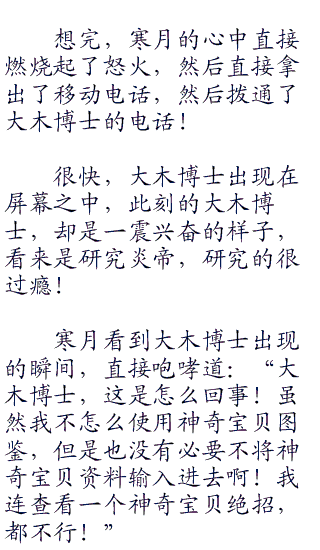 想完，寒月的心中直接
燃烧起了怒火，然后直接拿
出了移动电话，然后拨通了
大木博士的电话！
很快，大木博士出现在
屏幕之中，此刻的大木博
士，却是一震兴奋的样子，
看来是研究炎帝，研究的很
过瘾！
寒月看到大木博士出现
的瞬间，直接咆哮道：“大
木博士，这是怎么回事！虽
然我不怎么使用神奇宝贝图
鉴，但是也没有必要不将神
奇宝贝资料输入进去啊！我
连查看一个神奇宝贝绝招，
都不行！”